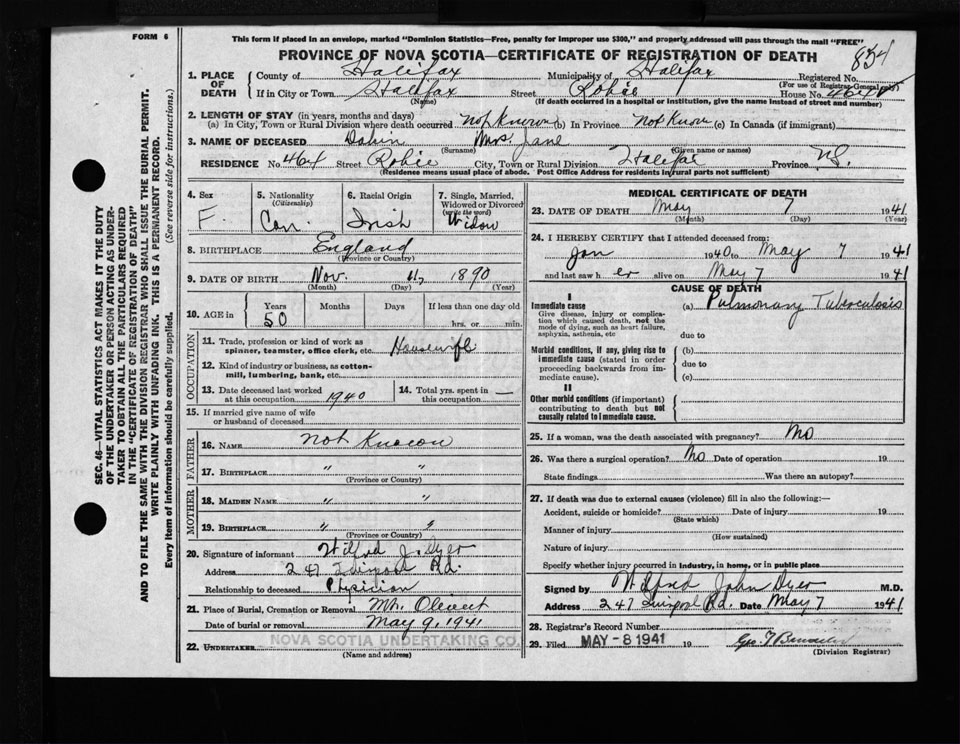 FORM 6
This form if placed in an envelope, marked "Dominion Statistics—Free, penalty for improper use $300," and properly addressed will pass through the mail "FREE"
PROVINCE OF NOVA SCOTIA—CERTIFICATE OF REGISTRATION OF DEATH
834
1. PLACE OF DEATH
County of Halifax Municipality of Halifax Registered No.
(For use of Registrar-General only)
If in City or Town Halifax Street Robie House No.
(Name) (If death occurred in a hospital or institution, give the name instead of street and number)
2. LENGTH OF STAY (in years, months and days)
(a) In City, Town or Rural Division where death occurred Not Known (b) In Province Not Know (c) In Canada (if immigrant)
3. NAME OF DECEASED Mrs. Jane
(Surname) (Given name or names)
RESIDENCE No. 464 Street Robie City, Town or Rural Division Halifax Province N.S.
(Residence means usual place of abode. Post Office Address for residents in rural parts not sufficient)
4. Sex F.
5. Nationality (Citizenship) Can
6. Racial Origin Irish
7. Single, Married, Widowed or Divorced (write the word) Widow
8. BIRTHPLACE England
(Province or Country)
9. DATE OF BIRTH Nov. 1890
(Month) (Day) (Year)
10. AGE in Years 50 Months Days If less than one day old hrs. or min.
OCCUPATION
11. Trade, profession or kind of work as spinner, teamster, office clerk, etc. Housewife
12. Kind of industry or business, as cotton-mill, lumbering, bank, etc.
13. Date deceased last worked at this occupation 1940
14. Total yrs. spent in this occupation —
15. If married give name of wife or husband of deceased
FATHER
16. NAME Not Known
17. BIRTHPLACE " "
(Province or Country)
MOTHER
18. MAIDEN NAME " "
19. BIRTHPLACE " "
(Province or Country)
20. Signature of informant Wilfred J. Dyer
Address 247 Rd.
Relationship to deceased Physician
21. Place of Burial, Cremation or Removal Mt. Olivet
Date of burial or removal May 9, 1941
22. UNDERTAKER NOVA SCOTIA UNDERTAKING CO.
(Name and address)
MEDICAL CERTIFICATE OF DEATH
23. DATE OF DEATH May 7 1941
(Month) (Day) (Year)
24. I HEREBY CERTIFY that I attended deceased from:
Jan 1940 to May 7 1941
and last saw h er alive on May 7 1941
CAUSE OF DEATH
I
Immediate cause (a) Pulmonary Tuberculosis
Give disease, injury or complication which caused death, not the mode of dying, such as heart failure, asphyxia, asthenia, etc
due to
Morbid conditions, if any, giving rise to immediate cause (stated in order proceeding backwards from immediate cause).
(b)
due to
(c)
II
Other morbid conditions (if important) contributing to death but not causally related to immediate cause.
25. If a woman, was the death associated with pregnancy? No
26. Was there a surgical operation? No Date of operation 19
State findings Was there an autopsy?
27. If death was due to external causes (violence) fill in also the following:—
Accident, suicide or homicide? Date of injury 19
(State which)
Manner of injury
(How sustained)
Nature of injury
Specify whether injury occurred in industry, in home, or in public place
Signed by Wilfred John Dyer M.D.
Address 247 Rd. Date May 7 1941
28. Registrar's Record Number
29. Filed MAY - 8 1941 19
(Division Registrar)
SEC. 46—VITAL STATISTICS ACT MAKES IT THE DUTY
OF THE UNDERTAKER OR PERSON ACTING AS UNDER-
TAKER TO OBTAIN ALL THE PARTICULARS REQUIRED
IN THE "CERTIFICATE OF REGISTRATION OF DEATH"
AND TO FILE THE SAME WITH THE DIVISION REGISTRAR WHO SHALL ISSUE THE BURIAL PERMIT.
WRITE PLAINLY WITH UNFADING INK. THIS IS A PERMANENT RECORD.
Every item of information should be carefully supplied. (See reverse side for instructions.)